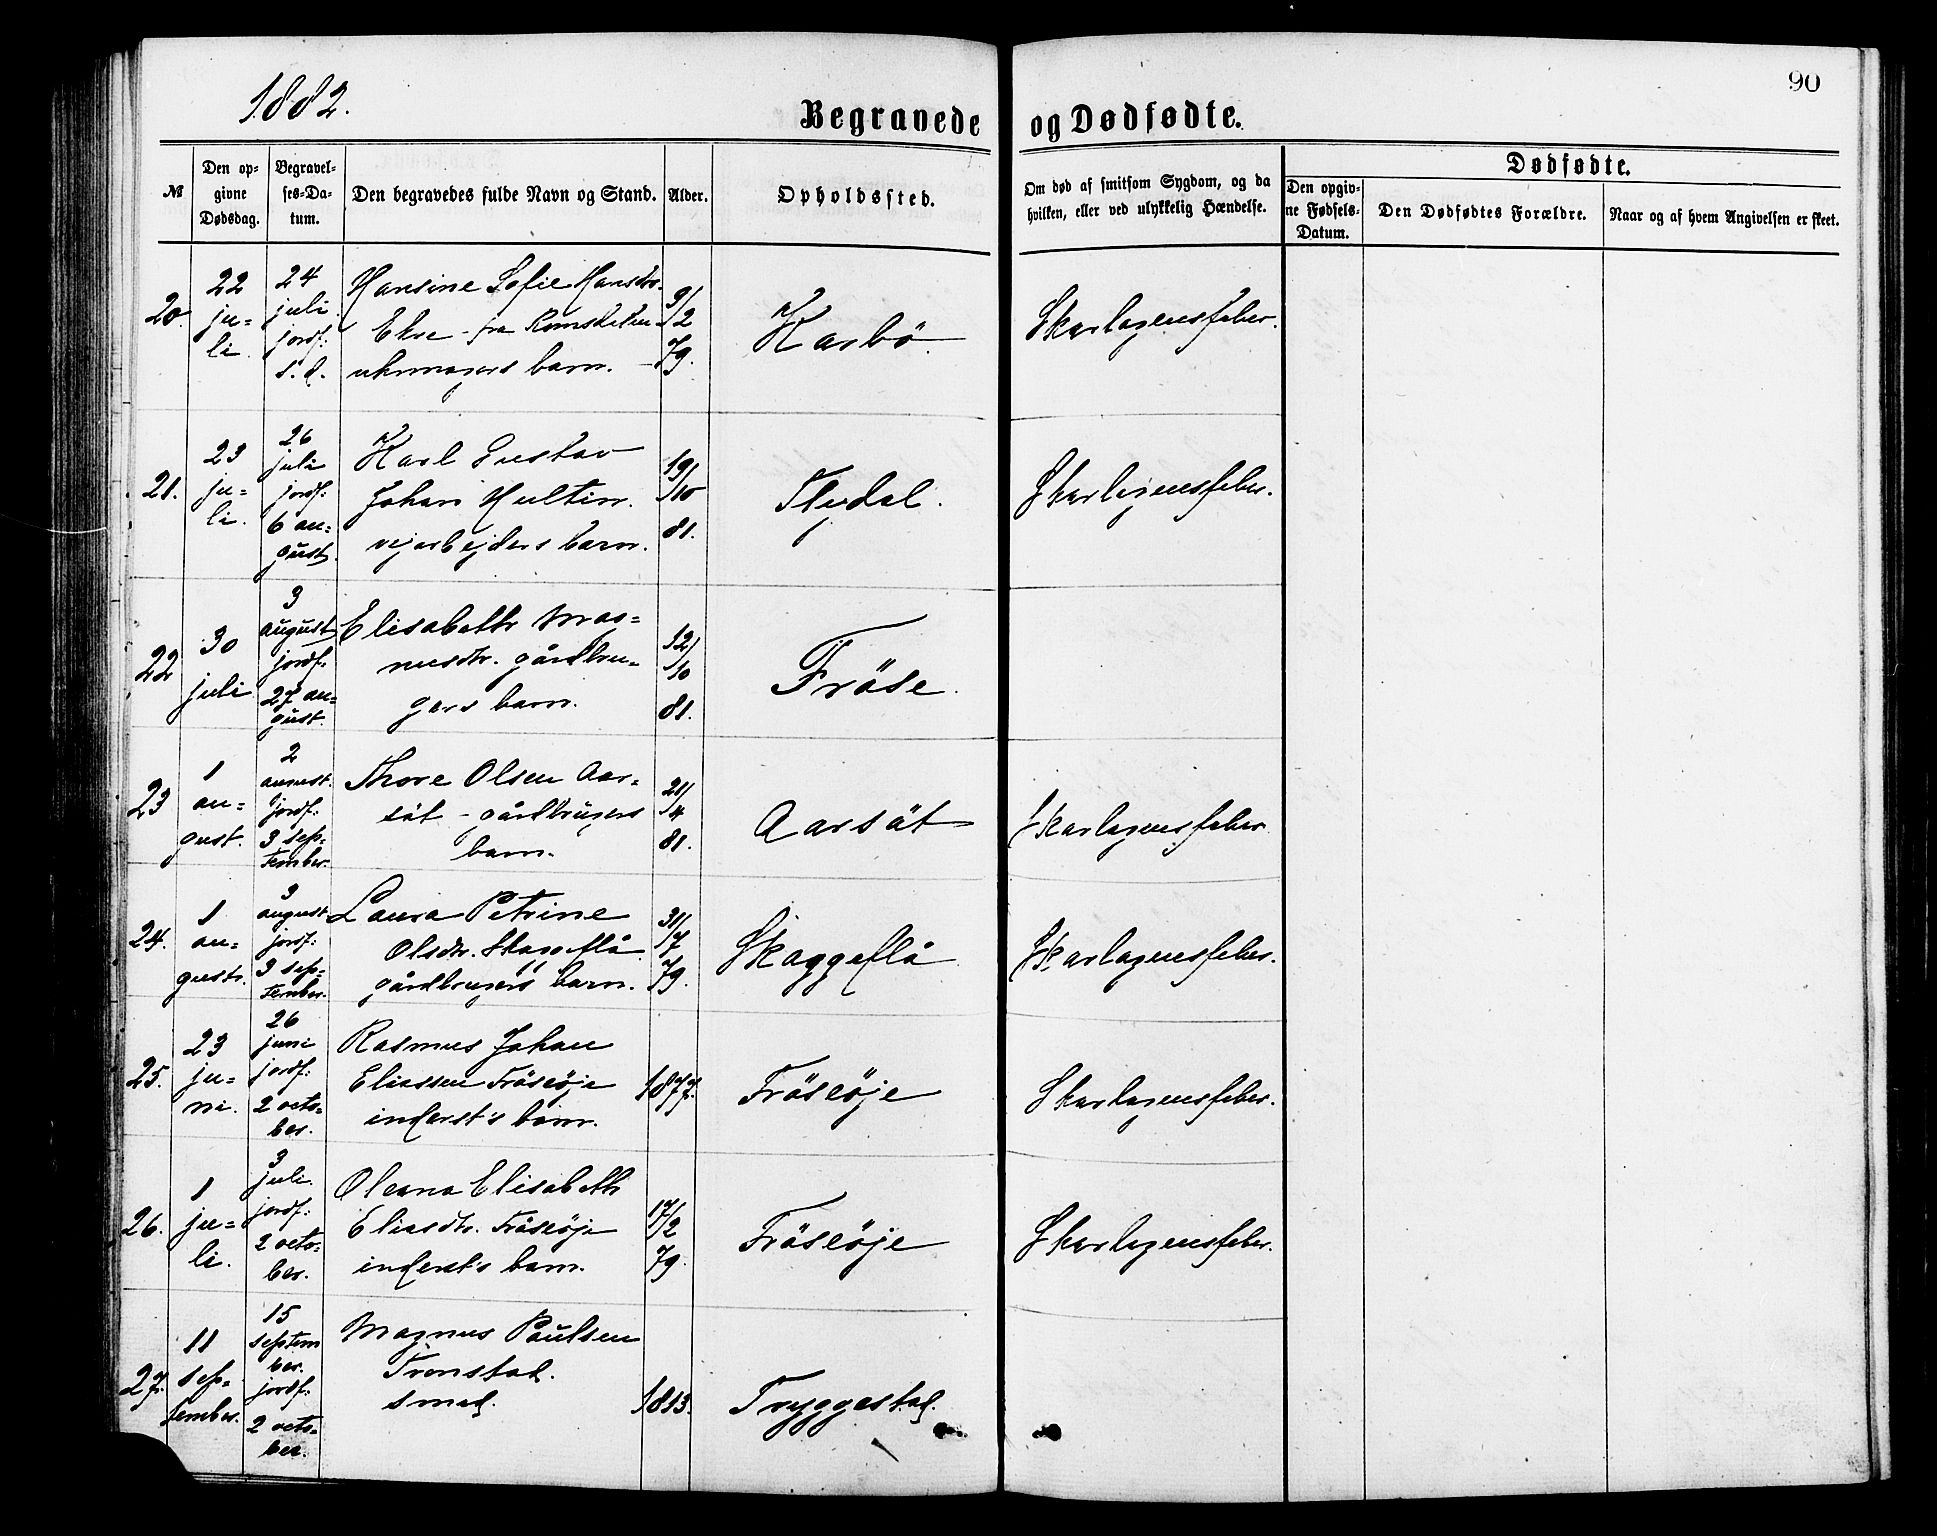 1882.
90
Begravede og Dødfødte.
№
Den op-
givne
Dødsdag.
Begravel-
ses-Da-
tum.
Den begravedes fulde Navn og Stand.
Alder.
Opholdssted.
Om død af smitsom Sygdom, og da
hvilken, eller ved ulykkelig Hændelse.
Dødfødte.
Den opgiv-
ne Fødsels-
Datum.
Den Dødfødtes Forældre.
Naar og af hvem Angivelsen er skeet.
20.
22
ju-
li.
24
juli
jordf:
s. d.
Hansine Sofie Hansdtr.
fra Romsdalen
uhrmagers barn.
9/2
79.
Karbö.
Skarlagensfeber.
21.
23
ju-
li.
26
juli
jordf:
6 au-
gust.
Karl Gustav
Johan Hultin.
vejarbejders barn.
19/10
81.
Stydal.
Skarlagensfeber.
22
30
juli
3
august
jordf.
27 au-
gust.
Elisabeth Mag-
nusdtr. gårdbru-
gers barn.
12/10
81.
Fröse.
23
1
au-
gust.
2
august.
jordf:
3 sep-
tember.
Thore Olsen Aar-
söt - gårdbrugers
barn.
21/4
81.
Aarsöt
Skarlagensfeber
24.
1
au-
gust.
3
august
jordf:
3 sep-
tember.
Laura Petrine
Olsdtr. Skaggeflå
gårdbrugers barn.
31/7
79.
Skaggeflå
Skarlagensfeber.
25.
23
ju-
ni.
26
juni
jordf:
2 octo-
ber.
Rasmus Johan
Eliassen Fröseöje
inderst's barn.
1877.
Fröseöje
Skarlagensfeber.
26.
1
ju-
li.
3
juli.
jordf:
2 octo-
ber.
Oleana Elisabeth
Eliasdtr. Fröseöje
inderst's barn.
17/2
79.
Fröseöje
Skarlagensfeber.
27.
11
sep-
tember.
15
septem
ber.
jordf.
2 octo-
ber.
Magnus Paulsen
Tronstad.
smed.
1813.
Tryggestad.